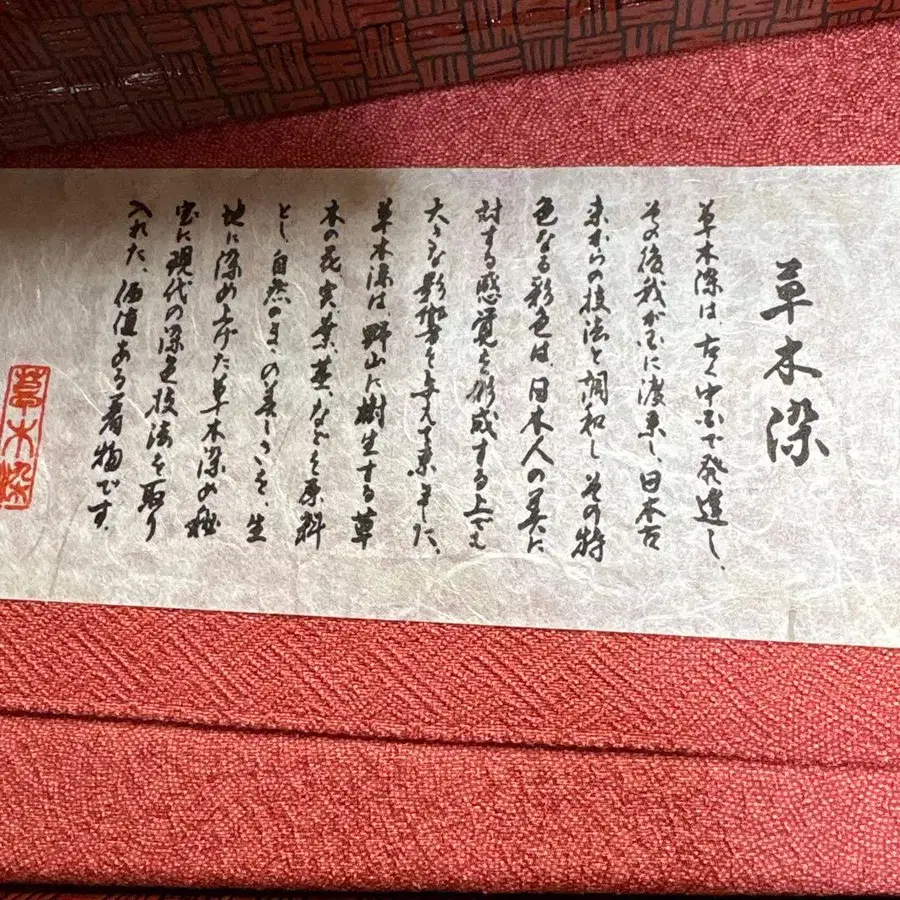 草木染
草木染は、古く中国で発達し、
その後我が国に渡来し、日本古
来からの技法と調和し その特
色なる彩色は、日本人の美に
対する感覚を形成する上でも
大きな影響を与えて来ました、
草木染は 野山に樹生する草
木の花、実、葉、茎、などを原料
とし、自然のまゝの美しさを、生
地に染め上げた草木染の秘
宝に現代の染色技法を取り
入れた、価値ある着物です。
草木染